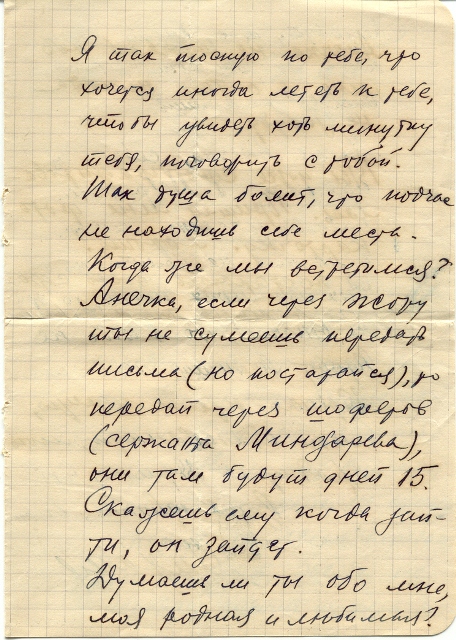 Я так тоскую по тебе, что
хочется иногда лететь к тебе,
чтобы увидеть хоть минутку
тебя, поговорить с тобой.
Так душа болит, что подчас
не находишь себе места.
Когда же мы встретимся?
Анечка, если через Жору
ты не сумеешь передать
письма (но постарайся), то
передай через шоферов
(сержанта Миндарева),
они там будут дней 15.
Скажешь ему когда зай-
ти, он зайдет.
Думаешь ли ты обо мне,
моя родная и любимая?